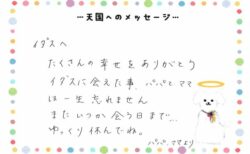 …天国へのメッセージ…
イダスへ
たくさんの幸せをありがとう
イダスに会えた事、パパとママ
は一生忘れません
またいつか会う日まで…
ゆっくり休んでね。
パパ、ママより